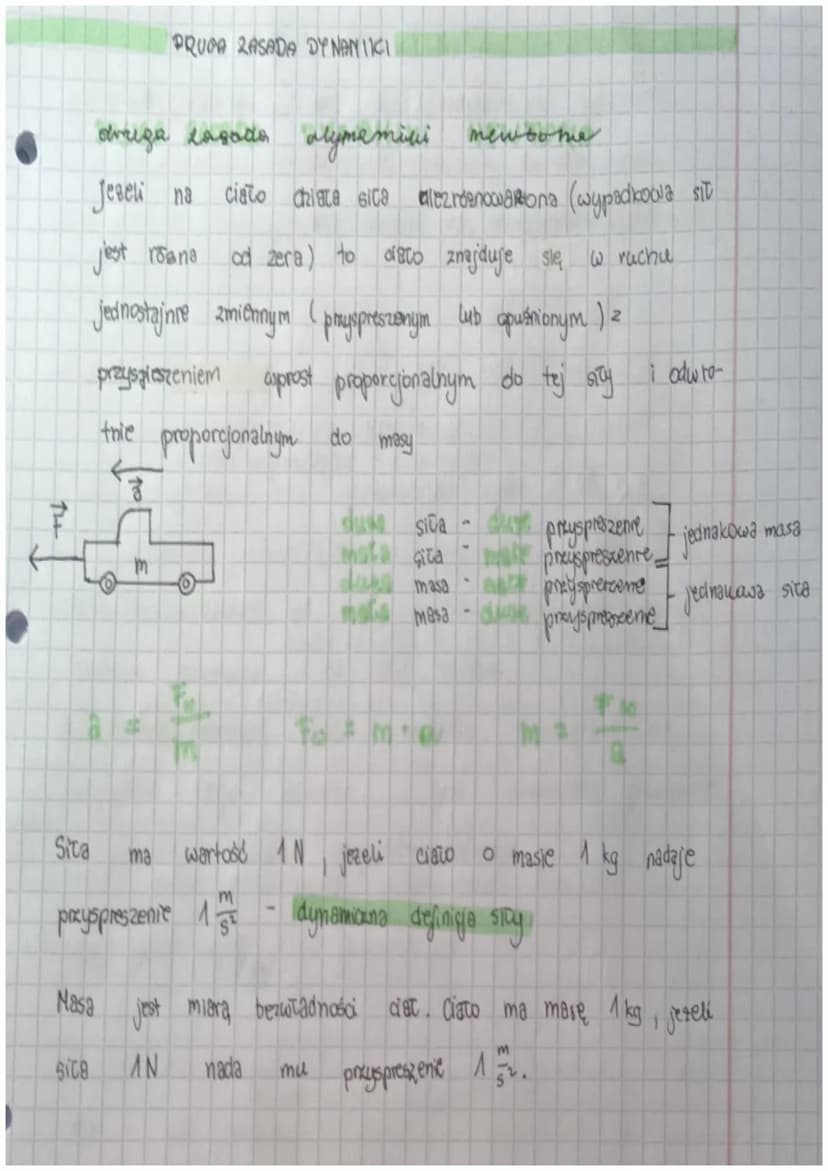 DRUGA ZASADA DYNAMIKI
druga zasada dynamiki newtona
Jeżeli na ciało działa siła niezrównoważona (wypadkowa sił
jest równa od zera) to ciało znajduje się w ruchu
jednostajnie zmiennym (przyspieszonym lub opuźnionym) z
przyspieszeniem wprost proporcjonalnym do tej siły i odwro-
tnie proporcjonalnym do masy
a
F
m
duża siła - duże przyspieszenie
mała siła - małe przyspieszenie
jednakowa masa
duża masa - małe przyspieszenie
mała masa - duże przyspieszenie
jednakowa siła
a = Fw/m Fw = m · a m = Fw/a
Siła ma wartość 1 N, jeżeli ciało o masie 1 kg nadaje
przyspieszenie 1 m/s² - dynamiczna definicja siły
Masa jest miarą bezwładności ciał. Ciało ma masę 1 kg, jeżeli
siła 1N nada mu przyspieszenie 1 m/s².